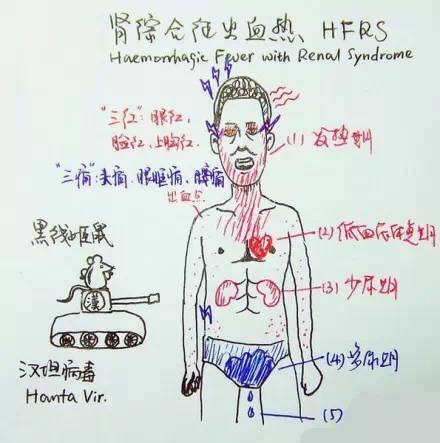 肾综合征出血热 HFRS
Haemorrhagic Fever with Renal Syndrome
"三红": 眼红,
脸红, 上胸红.
(1) 发热期
"三痛": 头痛. 眼眶痛, 腰痛
出血点
黑线姬鼠
(2) 低血压休克期
(3) 少尿期
漢
汉坦病毒
Hanta Vir.
(4) 多尿期
(5)